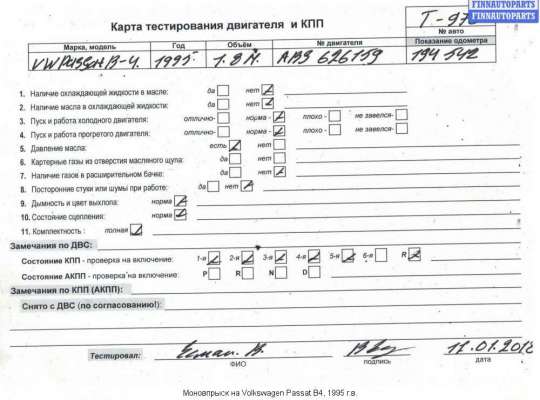 FINNAUTOPARTS
FINNAUTOPARTS
Карта тестирования двигателя и КПП
№ авто
Марка, модель Год Объём № двигателя Показание одометра
VW Passat B-4. 1995. 1.8 М. ABS 626159 194 542
1. Наличие охлаждающей жидкости в масле: да нет
2. Наличие масла в охлаждающей жидкости: да нет
3. Пуск и работа холодного двигателя: отлично- норма - плохо - не завелся-
4. Пуск и работа прогретого двигателя: отлично- норма - плохо - не завелся-
5. Давление масла: есть нет
6. Картерные газы из отверстия масляного щупа: да нет
7. Наличие газов в расширительном бачке: да нет
8. Посторонние стуки или шумы при работе: да нет
9. Дымность и цвет выхлопа: норма
10. Состояние сцепления: норма
11. Комплектность : полная
Замечания по ДВС:
Состояние КПП - проверка на включение: 1-я 2-я 3-я 4-я 5-я 6-я R
Состояние АКПП - проверка на включение: P R N D
Замечания по КПП (АКПП):
Снято с ДВС (по согласованию!):
Тестировал: 11.01.2012
ФИО подпись дата
Моновпрыск на Volkswagen Passat B4, 1995 г.в.